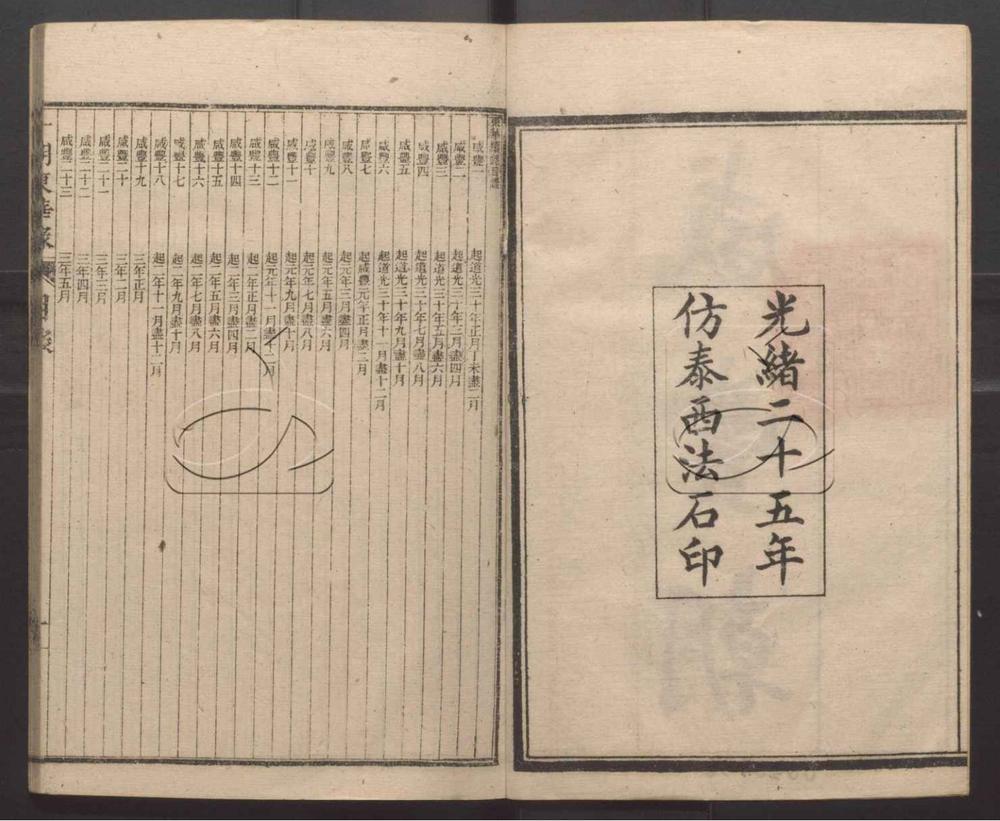 光緒二十五年
仿泰西法石印
咸豐一 起道光三十年正月丁未盡二月
咸豐二 起道光三十年三月盡四月
咸豐三 起道光三十年五月盡六月
咸豐四 起道光三十年七月盡八月
咸豐五 起道光三十年九月盡十月
咸豐六 起道光三十年十一月盡十二月
咸豐七 起咸豐元年正月盡二月
咸豐八 起元年三月盡四月
咸豐九 起元年五月盡六月
咸豐十 起元年七月盡八月
咸豐十一 起元年九月盡十月
咸豐十二 起元年十一月盡十二月
咸豐十三 起二年正月盡二月
咸豐十四 起二年三月盡四月
咸豐十五 起二年五月盡六月
咸豐十六 起二年七月盡八月
咸豐十七 起二年九月盡十月
咸豐十八 起二年十一月盡十二月
咸豐十九 三年正月
咸豐二十 三年二月
咸豐二十一 三年三月
咸豐二十二 三年四月
咸豐二十三 三年五月
朝東華錄